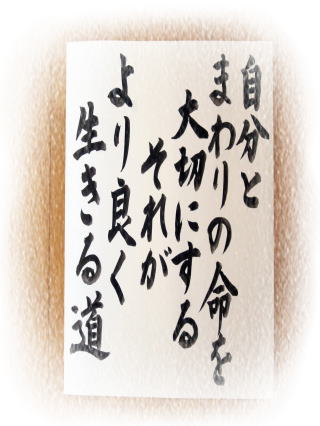 自分と
まわりの命を
大切にする
それが
より良く
生きる道